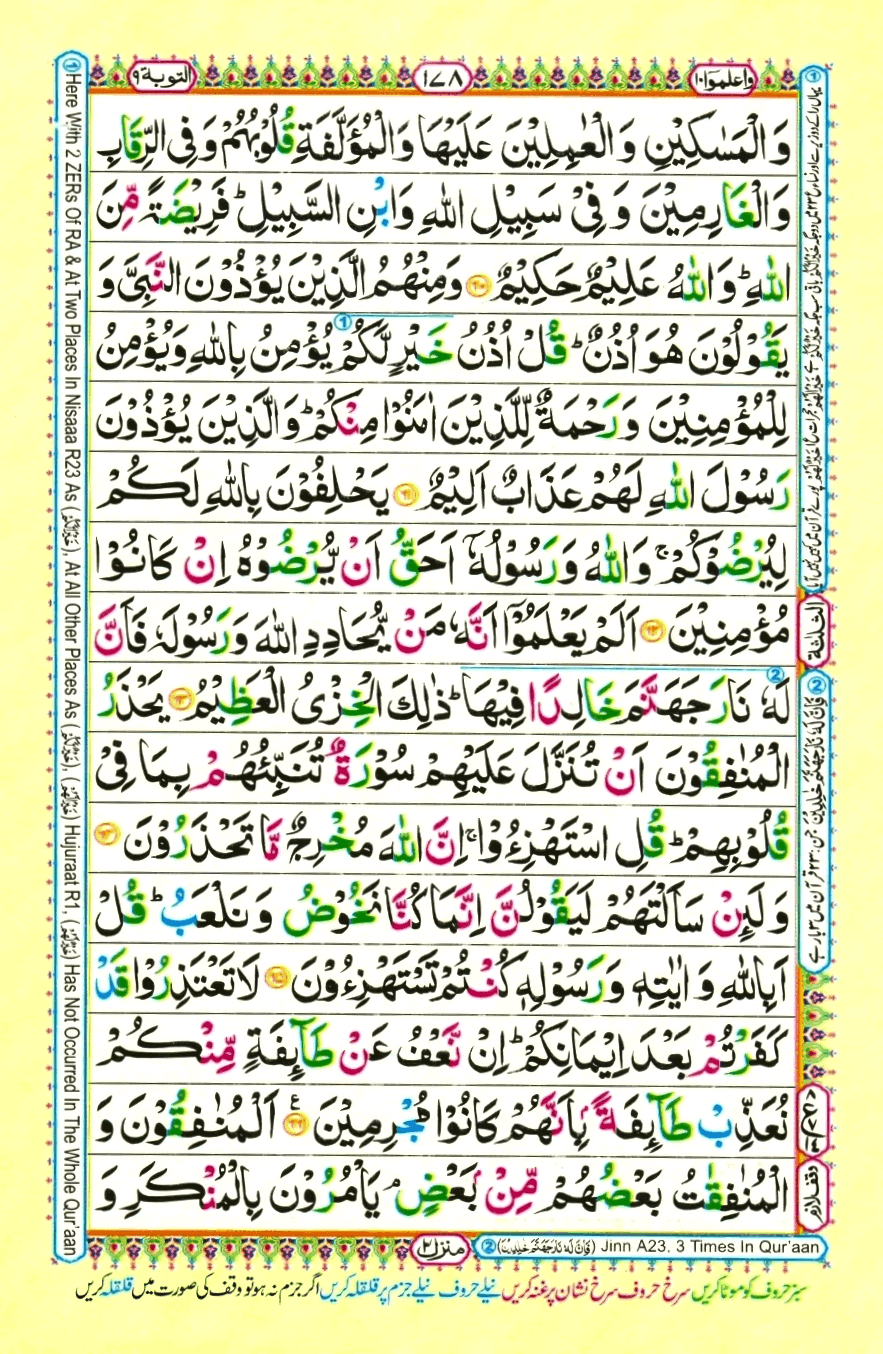 واعلموا ١٠
١٧٨
التوبة ٩
وَالْمَسٰكِيْنِ وَالْعٰمِلِيْنَ عَلَيْهَا وَالْمُؤَلَّفَةِ قُلُوْبُهُمْ وَفِى الرِّقَابِ
وَالْغَارِمِيْنَ وَفِىْ سَبِيْلِ اللّٰهِ وَابْنِ السَّبِيْلِ ؕ فَرِيْضَةً مِّنَ
اللّٰهِ ؕ وَاللّٰهُ عَلِيْمٌ حَكِيْمٌ ۝٦٠ وَمِنْهُمُ الَّذِيْنَ يُؤْذُوْنَ النَّبِىَّ وَ
يَقُوْلُوْنَ هُوَ اُذُنٌ ؕ قُلْ اُذُنُ خَيْرٍ لَّكُمْ يُؤْمِنُ بِاللّٰهِ وَيُؤْمِنُ
لِلْمُؤْمِنِيْنَ وَرَحْمَةٌ لِّلَّذِيْنَ اٰمَنُوْا مِنْكُمْ ؕ وَالَّذِيْنَ يُؤْذُوْنَ
رَسُوْلَ اللّٰهِ لَهُمْ عَذَابٌ اَلِيْمٌ ۝٦١ يَحْلِفُوْنَ بِاللّٰهِ لَكُمْ
لِيُرْضُوْكُمْ ۚ وَاللّٰهُ وَرَسُوْلُهٗۤ اَحَقُّ اَنْ يُّرْضُوْهُ اِنْ كَانُوْا
مُؤْمِنِيْنَ ۝٦٢ اَلَمْ يَعْلَمُوْۤا اَنَّهٗ مَنْ يُّحَادِدِ اللّٰهَ وَرَسُوْلَهٗ فَاَنَّ
لَهٗ نَارَ جَهَنَّمَ خَالِدًا فِيْهَا ؕ ذٰلِكَ الْخِزْىُ الْعَظِيْمُ ۝٦٣ يَحْذَرُ
الْمُنٰفِقُوْنَ اَنْ تُنَزَّلَ عَلَيْهِمْ سُوْرَةٌ تُنَبِّئُهُمْ بِمَا فِىْ
قُلُوْبِهِمْ ؕ قُلِ اسْتَهْزِءُوْا ۚ اِنَّ اللّٰهَ مُخْرِجٌ مَّا تَحْذَرُوْنَ ۝٦٤
وَلَئِنْ سَاَلْتَهُمْ لَيَقُوْلُنَّ اِنَّمَا كُنَّا نَخُوْضُ وَنَلْعَبُ ؕ قُلْ
اَبِاللّٰهِ وَاٰيٰتِهٖ وَرَسُوْلِهٖ كُنْتُمْ تَسْتَهْزِءُوْنَ ۝٦٥ لَا تَعْتَذِرُوْا قَدْ
كَفَرْتُمْ بَعْدَ اِيْمَانِكُمْ ؕ اِنْ نَّعْفُ عَنْ طَآئِفَةٍ مِّنْكُمْ
نُعَذِّبْ طَآئِفَةًۢ بِاَنَّهُمْ كَانُوْا مُجْرِمِيْنَ ۝٦٦ اَلْمُنٰفِقُوْنَ وَ
الْمُنٰفِقٰتُ بَعْضُهُمْ مِّنْۢ بَعْضٍ ۘ يَاْمُرُوْنَ بِالْمُنْكَرِ وَ
الثلثة
وقف لازم
① Here With 2 ZERs Of RA & At Two Places In Nisaaa R23 As (خَيْرًا لَّكُمْ), At All Other Places As (خَيْرٌ لَّكُمْ), (خَيْرًا لَّهُمْ) Hujuraat R1, (خَيْرٍ لَّهُمْ) Has Not Occurred In The Whole Qur'aan
منزل ٢
② (فَاِنَّ لَهٗ نَارَ جَهَنَّمَ خٰلِدِيْنَ) Jinn A23. 3 Times In Qur'aan
سبز حروف کو موٹا کریں سرخ حروف سرخ نشان پر غنہ کریں نیلے حروف نیلے جزم پر قلقلہ کریں اگر جزم نہ ہو تو وقف کی صورت میں قلقلہ کریں